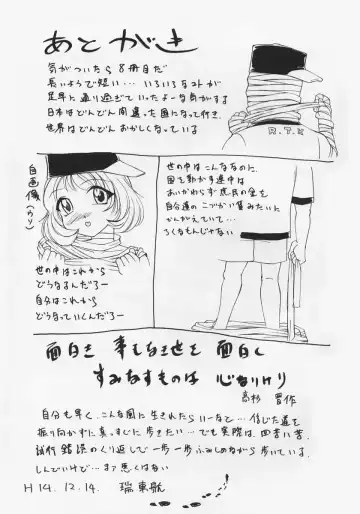 あとがき
気がついたら8冊目だ
長いようで短い…いろいろなコトが
足早に通り過ぎていったよーな気がする
日本はどんどん間違った国になって行き、
世界はどんどんおかしくなっている
R.T.K
自画像
(ウソ)
世の中はこれから
どうなるんだろー
自分はこれから
どうなっていくんだろー
世の中はこんななのに、
国を動かす連中は
あいかわらず庶民の金を
自分達のこづかい箋みたいに
かんがえていて…
ろくなもんじゃない
面白き 事もなき世を 面白く
すみなすものは 心なりけり
高杉 晋作
自分も早く、こんな風に生きれたらいーなと…信じた道を
振り向かずに真っすぐに歩きたい…でも実際は、四苦八苦、
試行錯誤のくり返しで一歩一歩ふみしめながら歩いている。
しんどいけど…まァ悪くはない
H14.12.14. 瑞東航